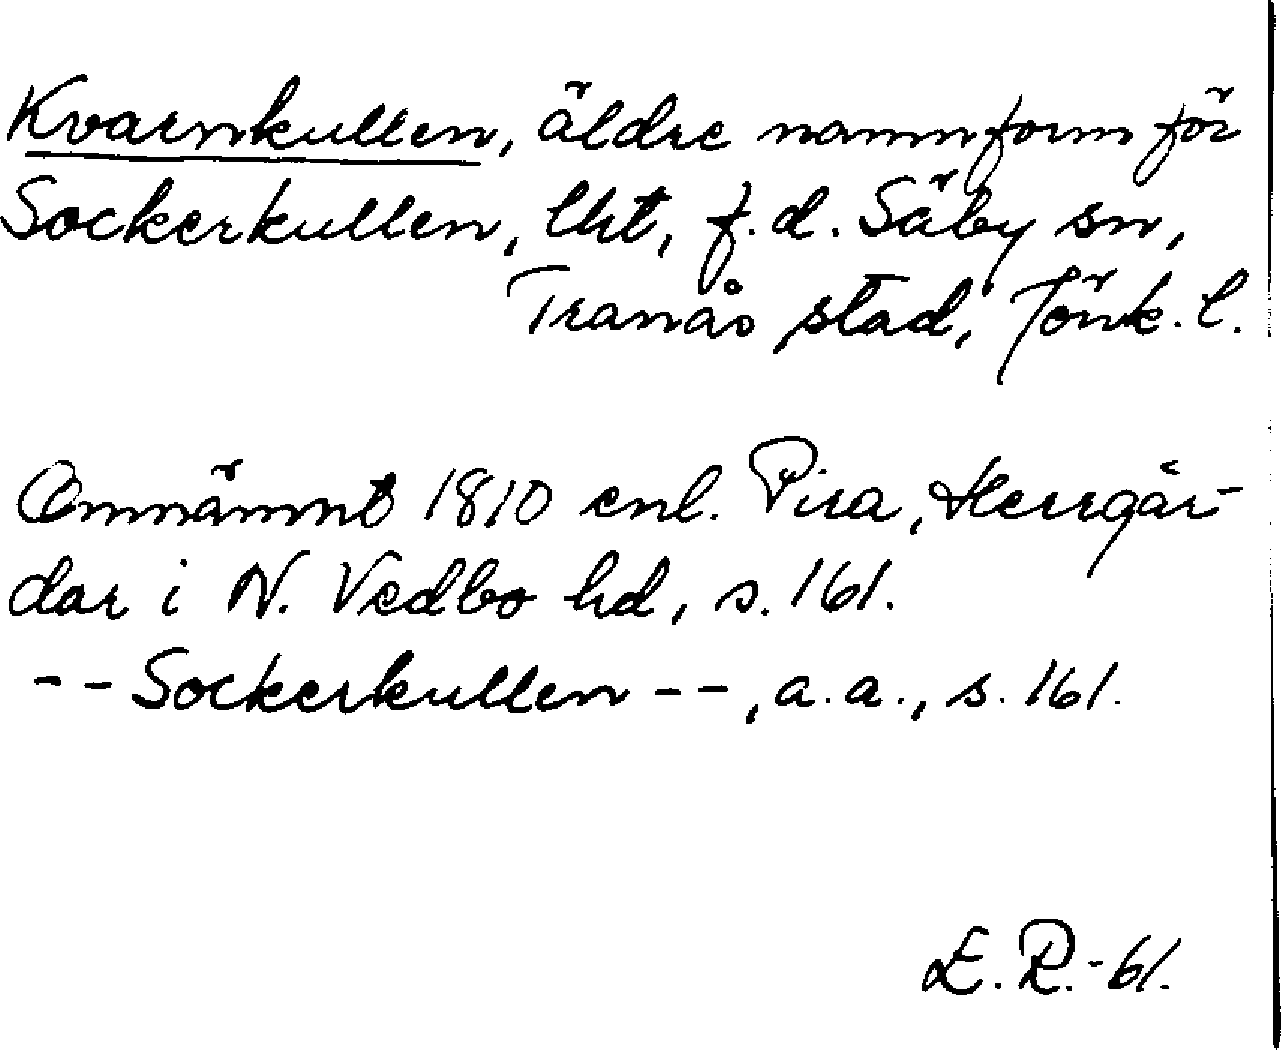 Kvarnkullen, äldre namnform för
Sockerkullen, lht, f.d. Säby sn,
Tranås stad, Jönk. l.
Omnämnt 1810 enl. Pira, Herrgår-
dar i N. Vedbo hd, s. 161.
-- Sockerkullen --, a.a., s. 161.
E.R.-61.